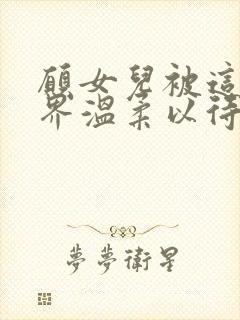 願女兒被這
界溫柔以待
夢夢衛星